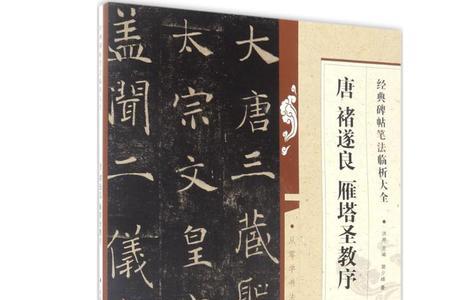 经典碑帖笔法临析大全
唐 褚遂良 雁塔圣教序
大唐三藏聖
太宗文皇
蓋聞二儀
从零学书